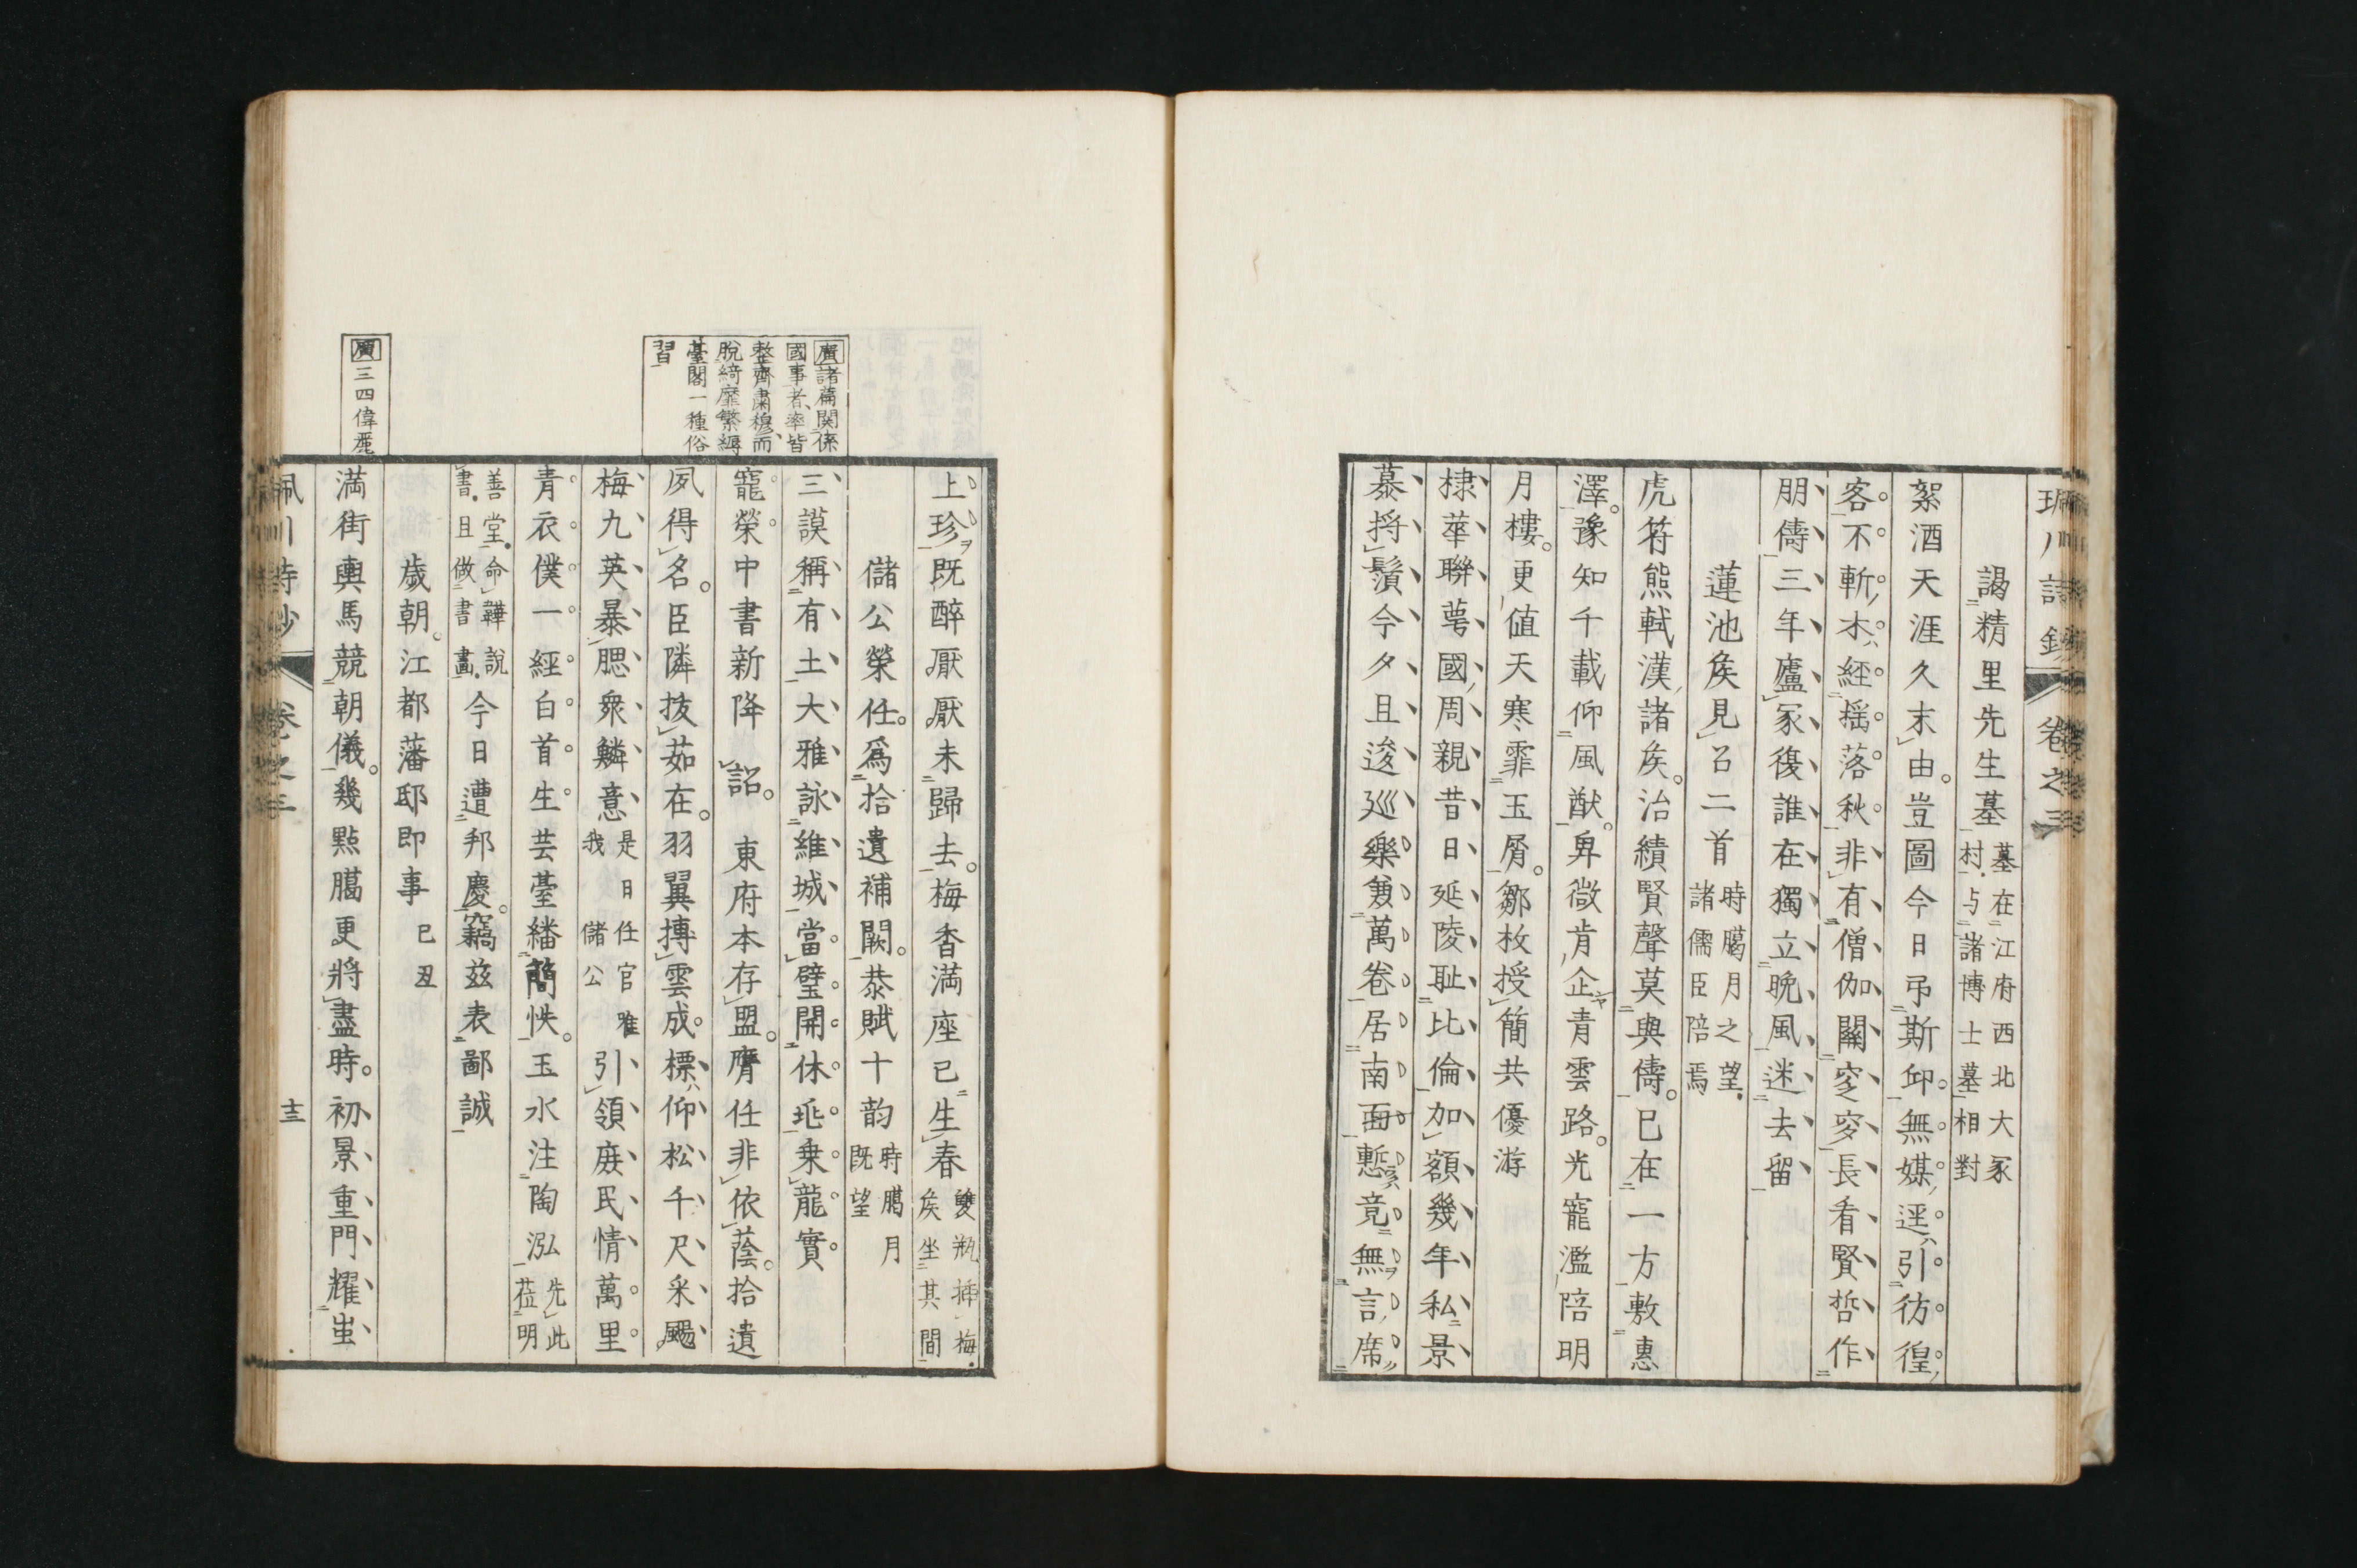 珮川詩鈔 卷之三
謁精里先生墓 墓在江府西北大冢村与諸博士墓相對
絮酒天涯久末由豈圖今日弔斯邱無媒逕引彷徨
客不斬木經搖落秋非有僧伽關窆穸長看賢哲作
朋儔三年廬冢復誰在獨立晩風迷去留
蓮池矦見召二首 時臈月之望諸儒臣陪焉
虎符熊軾漢諸矦治績賢聲莫與儔已在一方敷惠
澤豫知千載仰風猷卑微肯企青雲路光寵濫陪明
月樓更値天寒霏玉屑鄒枚授簡共優游
棣華聯萼國周親昔日延陵耻比倫加額幾年私景
慕捋鬚今夕且逡巡樂兼萬卷居南面慙竟無言席
上珍既醉厭厭未歸去梅香滿座已生春 雙瓶揷梅矦坐其間
儲公榮任爲拾遺補闕恭賦十韵 時臈月既望
三謨稱有土大雅詠維城當璧開休兆乗龍實
寵榮中書新降 詔 東府本存盟膺任非依蔭拾遺
夙得名臣隣拔茹在羽翼摶雲成標仰松千尺采颺
梅九英暴腮衆鱗意 是日任官雅我儲公 引領庶民情萬里
青衣僕一經白首生芸臺繙簡帙玉水注陶泓 先此莅明
善堂命韡說書且做書畫 今日遭邦慶竊茲表鄙誠
歳朝江都藩邸即事 已丑
滿街輿馬競朝儀幾點臈更將盡時初景重門耀蚩
珮川詩鈔 卷之三 十三
廣 諸篇関係
國事者率皆
整齊肅穆而
脫綺靡繁縟
臺閣一種俗
習
廣 三四偉麗